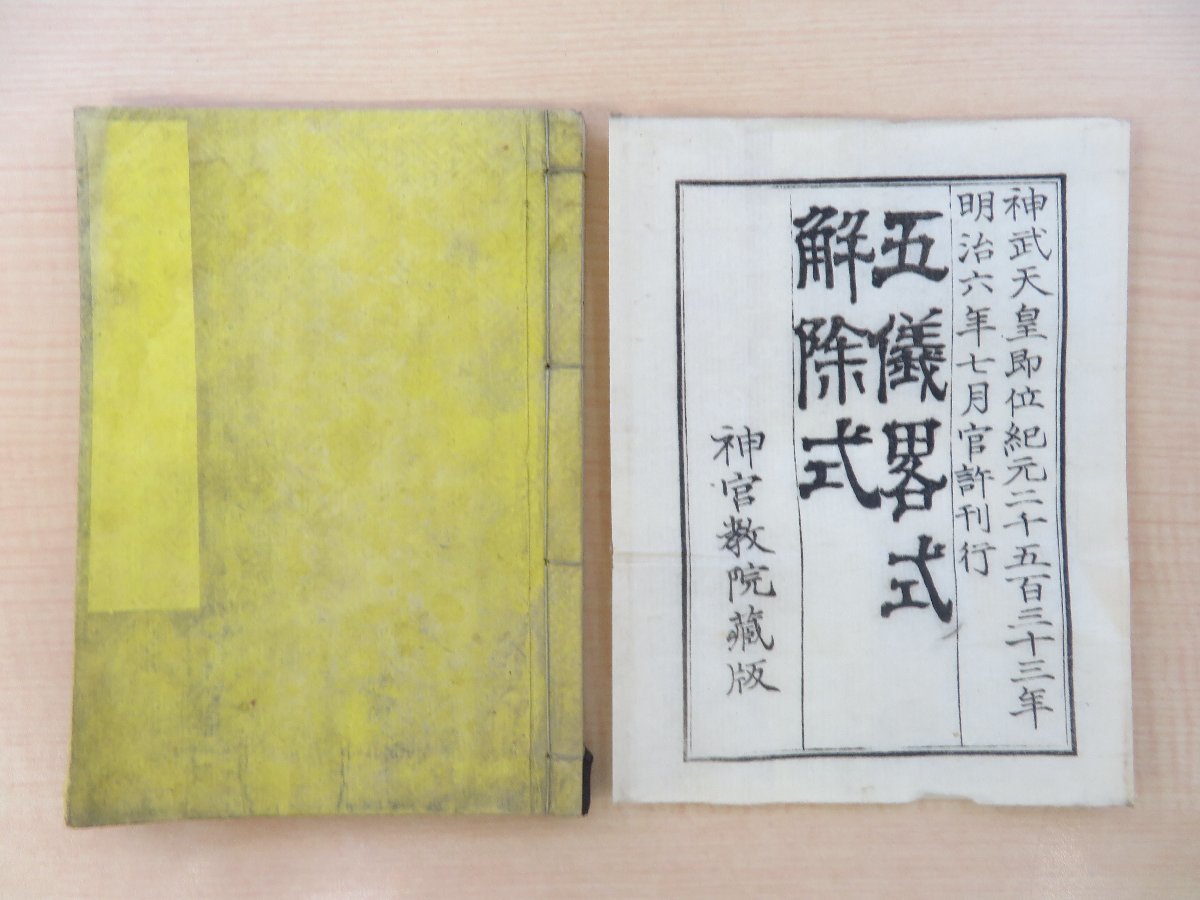 神武天皇即位紀元二千五百三十三年
明治六年七月官許刊行
五儀畧式
解除式
神官教院藏版